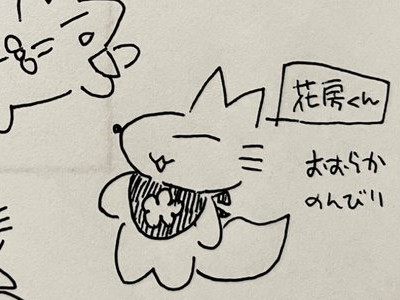 花房くん
おおらか
のんびり